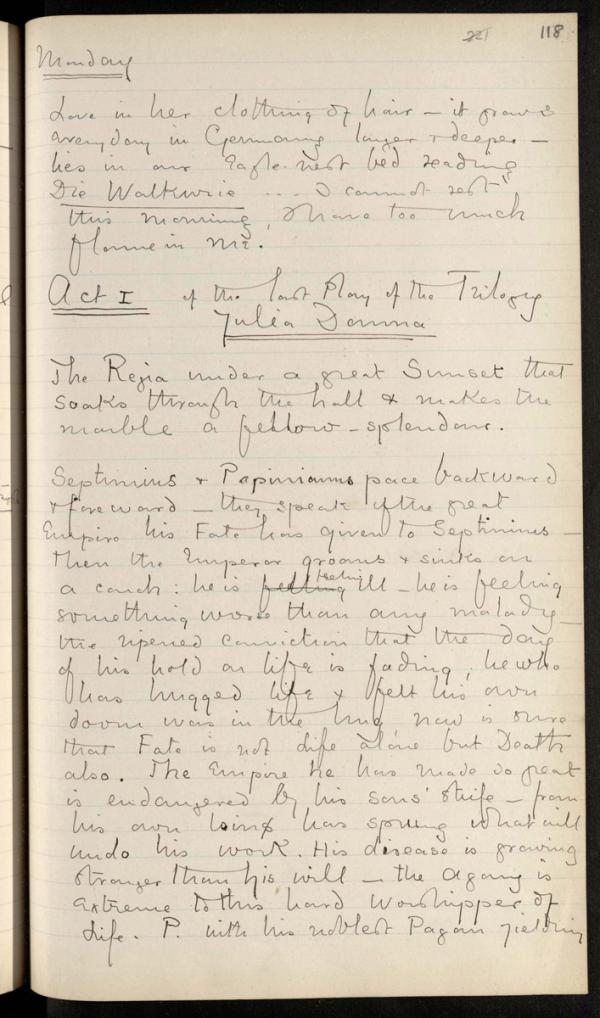 221 118
Monday
Love in her clothing of hair – it grows
every day in Germany larger & deeper –
lies in our Eagle-nest bed reading
Die Walkurie ... "I cannot rest"
this morning, I have too much
flame in me.
Act I of the last Play of the Trilogy
Julia Domna
The Regia under a great Sunset that
soaks through the hall & makes the
marble a fellow-splendour.
Septimius & Papinianus pace backward
& foreward – they speak of the great
Empire his Fate has given to Septimius –
then the Emperor groans & sinks on
a couch: he is feeling ill – he is feeling
something worse than any malady –
the ripened conviction that the day
of his hold on life is fading; he who
has hugged life & felt his own
doom was in the hug now is sure
that Fate is not Life alone but Death
also. The Empire he has made so great
is endangered by his sons' strife – from
his own loins has sprung what will
undo his work. His disease is growing
stronger than his will – the agony is
extreme to this hard worshipper of
Life. P. with his noblest Pagan yielding